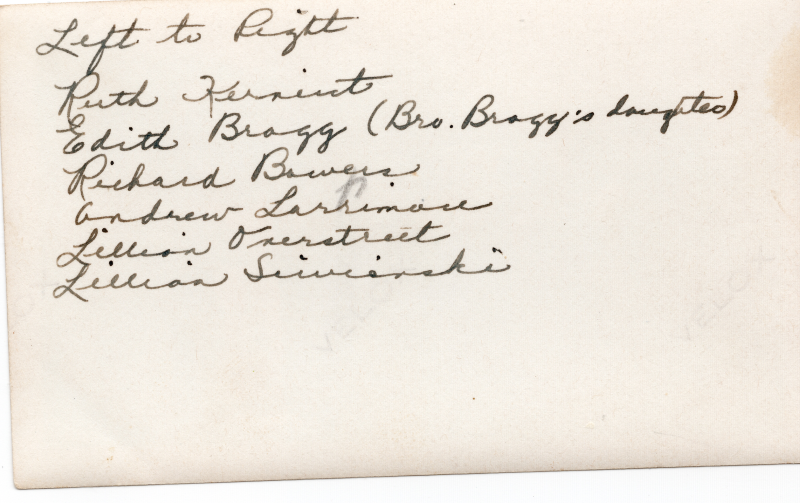 Left to Right
Ruth
Edith Bragg (Bro. Bragg's daughter)
Richard Bowers
Andrew Larrimore
Lillian Overstreet
Lillian Siwienski
VELOX
VELOX